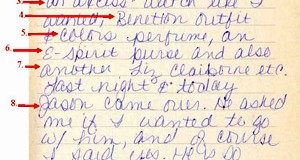 3. an access watch like I
4. wanted, Benetton outfit
5. & colors perfume, an
6. E-spirit purse and also
7. another Liz Claiborne etc.
Last night & today
8. Jason came over. He asked
me if I wanted to go
w/ him, and of course
I said yes. He is so